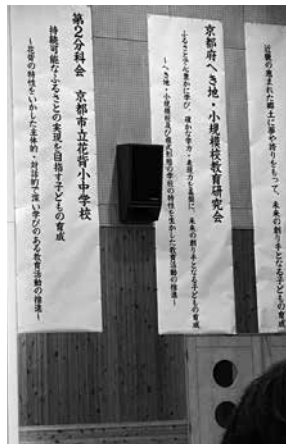 近畿の恵まれた郷土に夢や誇りをもって、未来の創り手となる子どもの育成
京都府へき地・小規模校教育研究会
ふるさとで心豊かに学び、確かな学力・表現力を基盤に、未来の創り手となる子どもの育成
～へき地・小規模校及び複式形態の学校の特性を生かした教育活動の推進～
第2分科会 京都市立花背小中学校
持続可能なふるさとの実現を目指す子どもの育成
～花背の特性をいかした主体的・対話的で深い学びのある教育活動の推進～